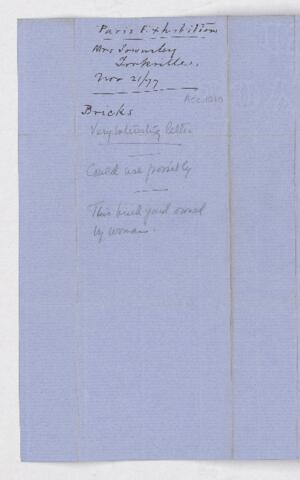 Paris Exhibition
Mrs Townsley
Yorkville.
Nov 21/77
Acc 1040
Bricks
Very interesting letter
Could use possibly
This brick yard owned
by woman.